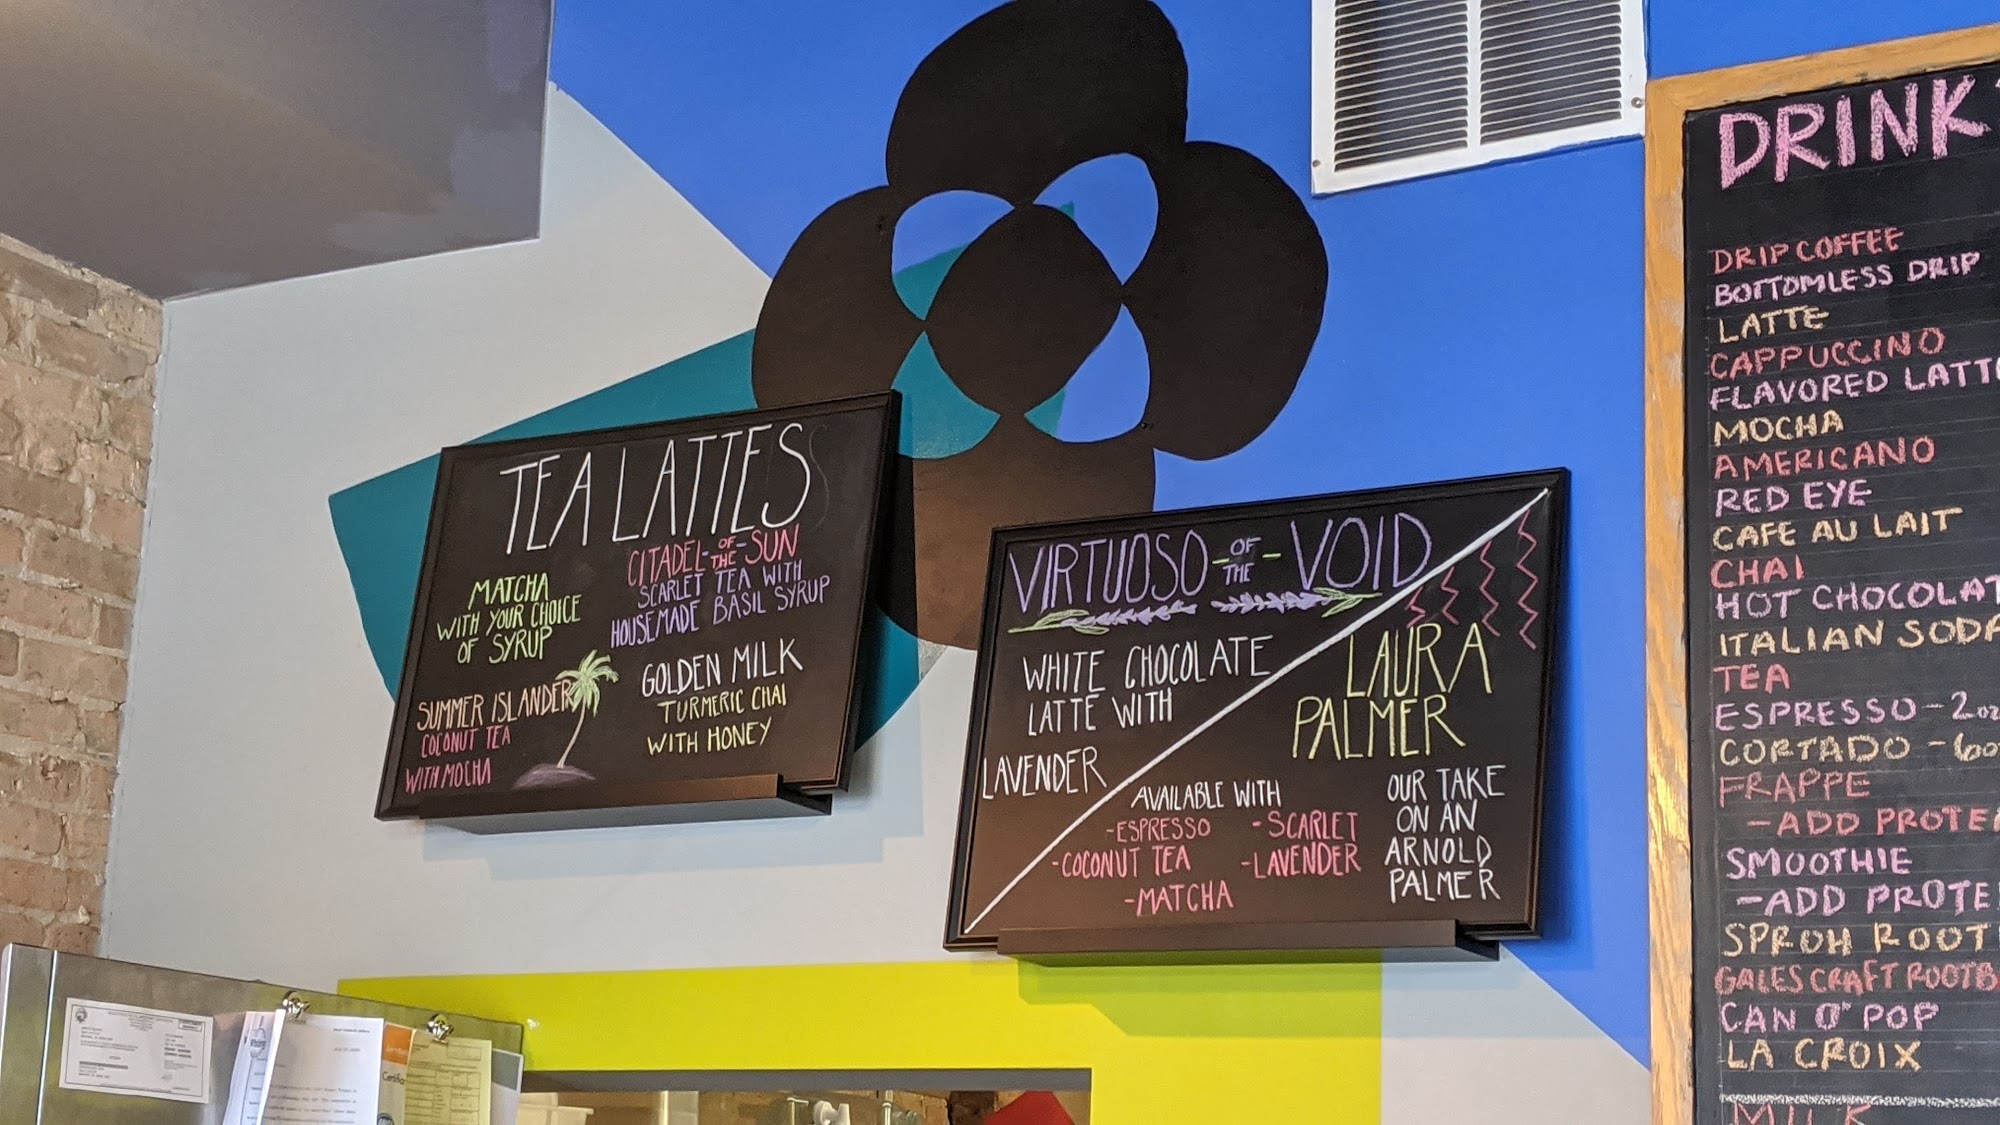 TEA LATTES
MATCHA
WITH YOUR CHOICE
OF SYRUP
CITADEL-OF-THE-SUN
SCARLET TEA WITH
HOUSEMADE BASIL SYRUP
SUMMER ISLANDER
COCONUT TEA
WITH MOCHA
GOLDEN MILK
TURMERIC CHAI
WITH HONEY
VIRTUOSO-OF THE-VOID
WHITE CHOCOLATE
LATTE WITH
LAVENDER
LAURA
PALMER
AVAILABLE WITH
-ESPRESSO
-COCONUT TEA
-MATCHA
-SCARLET
-LAVENDER
OUR TAKE
ON AN
ARNOLD
PALMER
DRINK
DRIP COFFEE
BOTTOMLESS DRIP
LATTE
CAPPUCCINO
FLAVORED LATT
MOCHA
AMERICANO
RED EYE
CAFE AU LAIT
CHAI
HOT CHOCOLAT
ITALIAN SODA
TEA
ESPRESSO - 2oz
CORTADO - 6oz
FRAPPE
-ADD PROTEI
SMOOTHIE
-ADD PROTEI
SPROH ROOT
GALESCRAFT ROOTB
CAN O' POP
LA CROIX
MILK